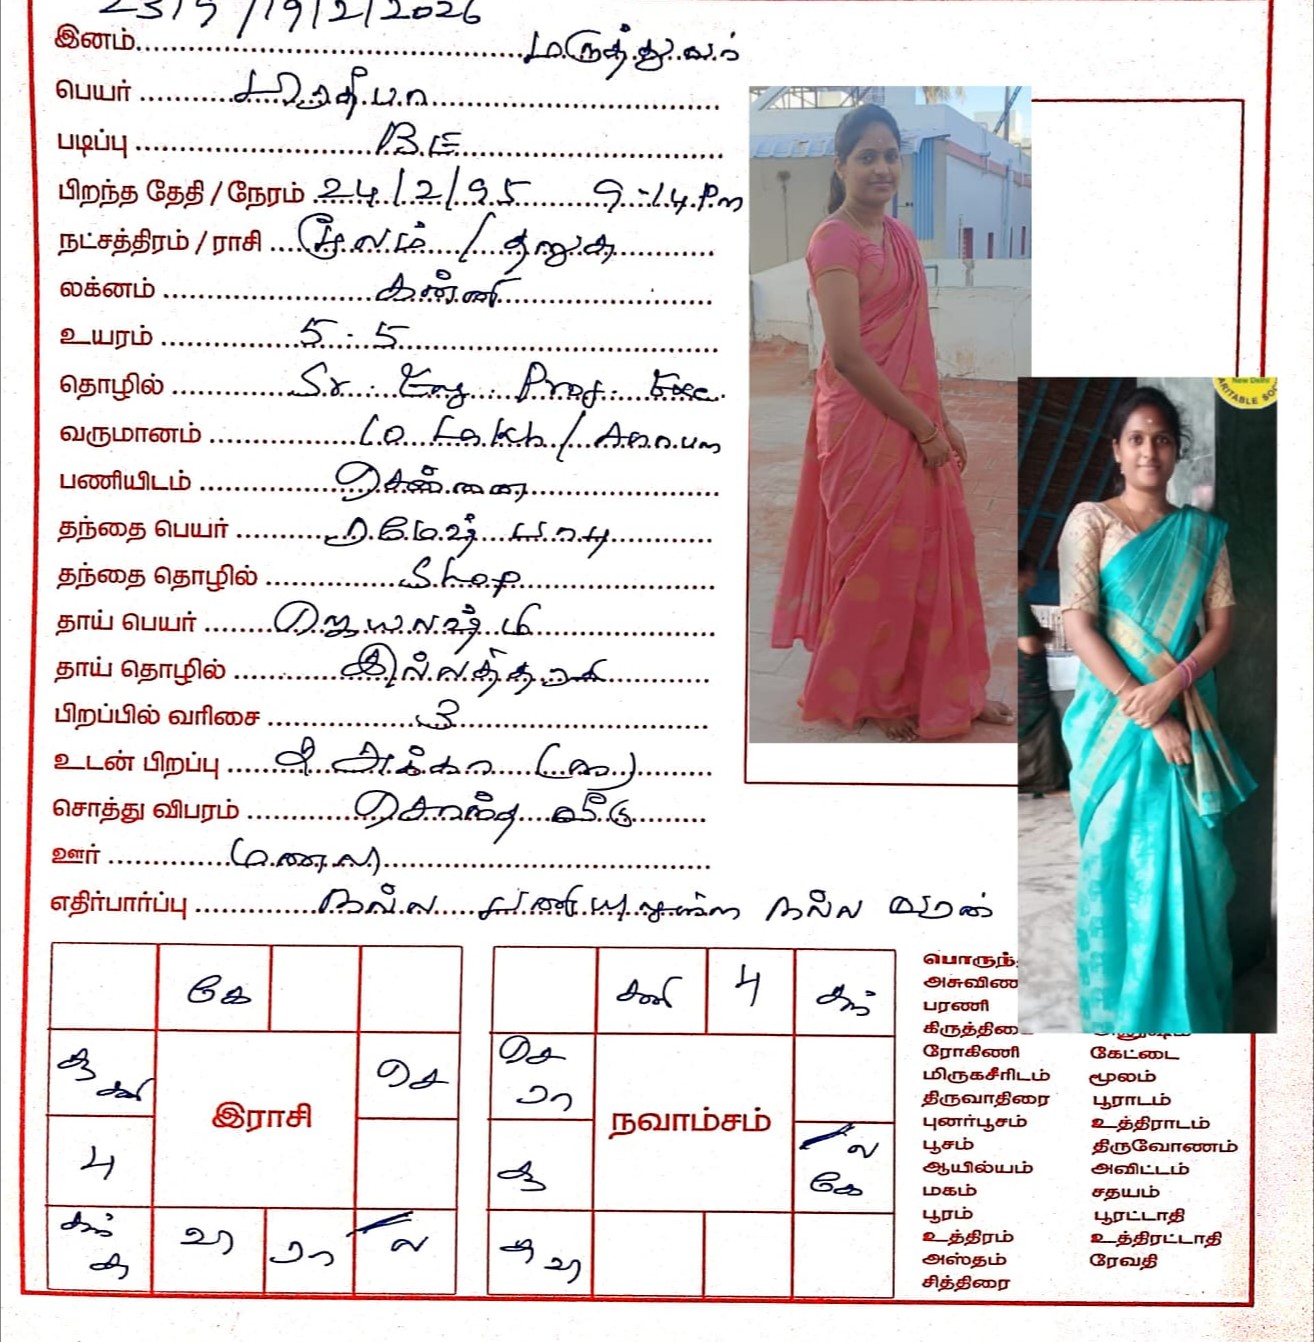 /19/2/2026
இனம் மருத்துவர்
பெயர் பிரதீபா
படிப்பு B.E
பிறந்த தேதி / நேரம் 24/2/95 9-14.Pm
நட்சத்திரம் / ராசி மூலம் / தனுசு
லக்னம் கன்னி
உயரம் 5.5
தொழில் Sr. Eng. Proj. Exe.
வருமானம் 10 Lakh / Annum
பணியிடம் சென்னை
தந்தை பெயர் ரமேஷ் பாபு
தந்தை தொழில் Shop
தாய் பெயர் ஜெயலஷ்மி
தாய் தொழில் இல்லத்தரசி
பிறப்பில் வரிசை 3
உடன் பிறப்பு அக்கா
சொத்து விபரம் சொந்த வீடு
ஊர் மணலி
எதிர்பார்ப்பு நல்ல பணியுள்ள நல்ல வரன்
கே
சூ சனி
செ
இராசி
பு
சுக் ச
வி
ரா
ல
சனி பு சுக்
செ ரா
நவாம்சம்
சூ
ல கே
ச வி
New Delhi
பொருந்
அசுவின
பரணி
கிருத்திகை
ரோகிணி கேட்டை
மிருகசீரிடம் மூலம்
திருவாதிரை பூராடம்
புனர்பூசம் உத்திராடம்
பூசம் திருவோணம்
ஆயில்யம் அவிட்டம்
மகம் சதயம்
பூரம் பூரட்டாதி
உத்திரம் உத்திரட்டாதி
அஸ்தம் ரேவதி
சித்திரை